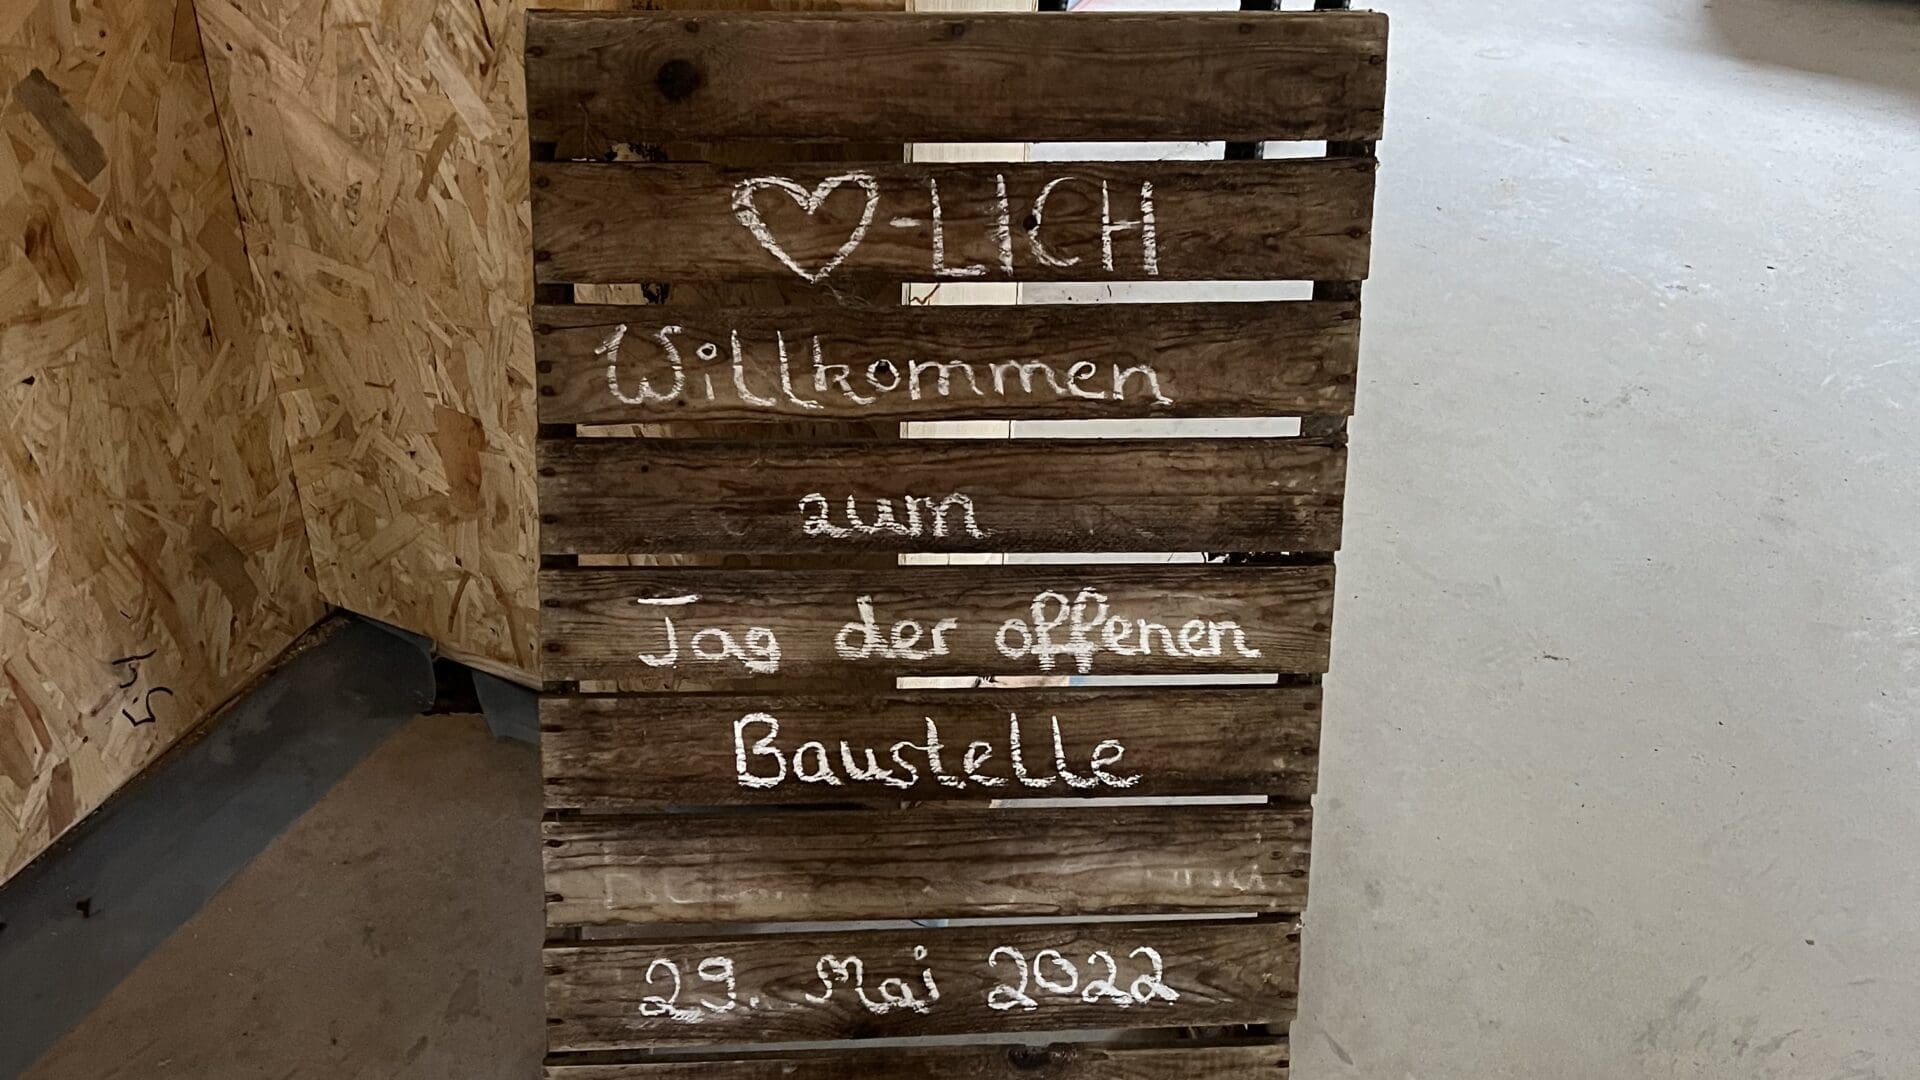 ♡-LICH
Willkommen
zum
Tag der offenen
Baustelle
29. Mai 2022